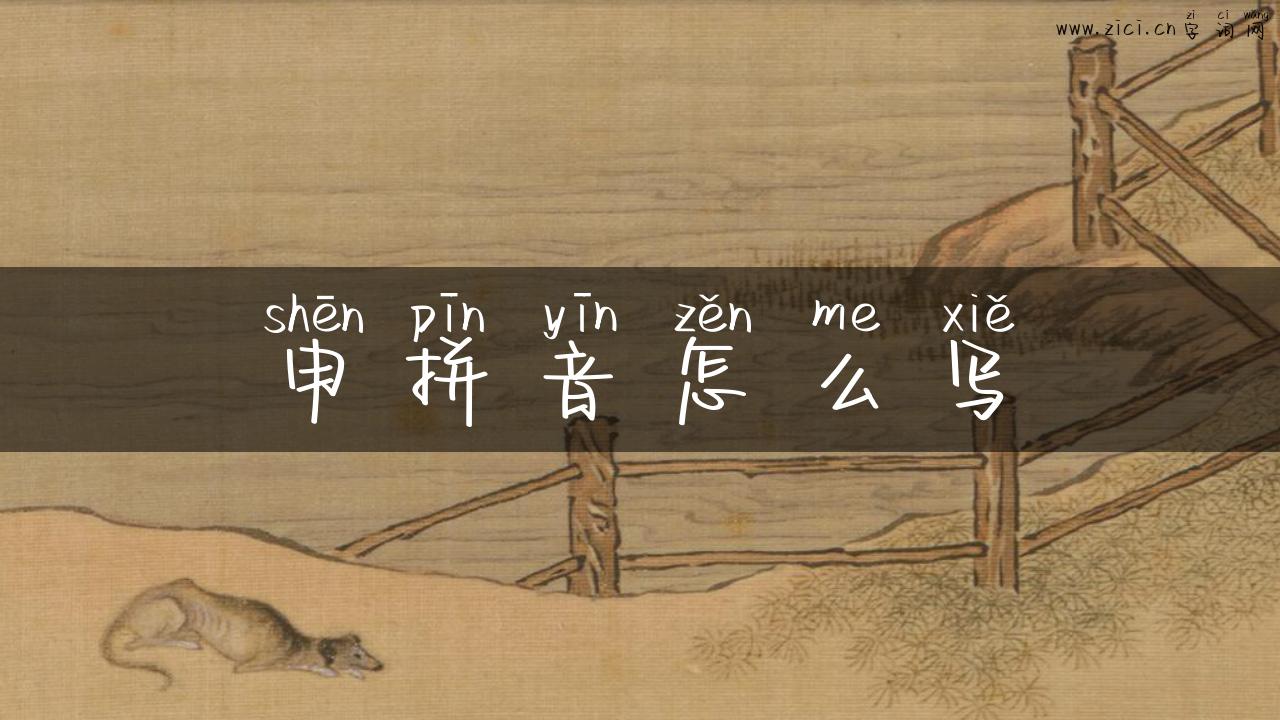 zi ci wang
www.zici.cn 字 词 网
shēn pīn yīn zěn me xiě
申 拼 音 怎 么 写